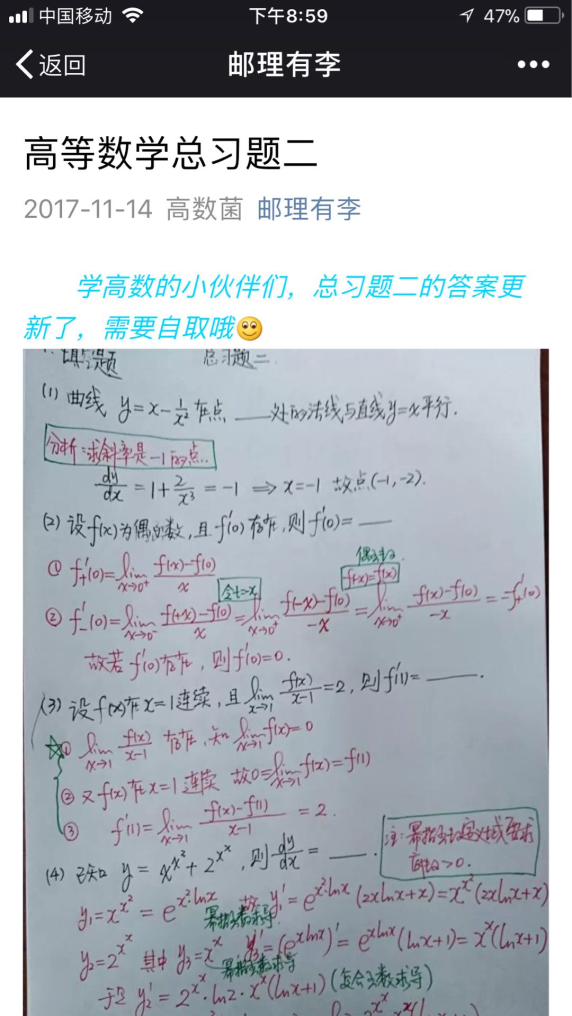 中国移动 下午8:59 47%
返回 邮理有李 •••
高等数学总习题二
2017-11-14 高数菌 邮理有李
学高数的小伙伴们，总习题二的答案更
新了，需要自取哦
填空题 总习题二
(1) 曲线 y=x-1/x² 在点 ___处的法线与直线y=x平行.
分析:求斜率是-1的点..
dy/dx = 1+2/x³ = -1 ⇒ x=-1 故点(-1,-2).
(2) 设f(x)为偶函数,且f'(0)存在,则f'(0)= ___
偶函数
① f'₊(0)=lim x→0⁺ (f(x)-f(0))/x 令t=-x f(-x)=f(x)
② f'₋(0)=lim x→0⁻ (f(x)-f(0))/x = lim x→0⁺ (f(-x)-f(0))/-x = lim x→0⁺ (f(x)-f(0))/-x = -f'₊(0)
故若f'(0)存在, 则f'(0)=0.
(3) 设f(x)在x=1连续,且lim x→1 f(x)/(x-1)=2, 则f'(1)= ___.
① lim x→1 f(x)/(x-1) 存在,知lim x→1 f(x)=0
② 又f(x)在x=1连续 故0=lim x→1 f(x)=f(1)
③ f'(1)=lim x→1 (f(x)-f(1))/(x-1) = 2.
注:幂指函数定义域要求
(4) 已知 y=x^(x²)+2^(x^x), 则dy/dx= ___.
y₁=x^(x²)=e^(x²·lnx) 故y₁'=e^(x²·lnx)(2xlnx+x)=x^(x²)(2xlnx+x)
幂指函数求导
y₂=2^(x^x) 其中y₃=x^x y₃'=(e^(xlnx))'=e^(xlnx)(lnx+1)=x^x(lnx+1)
幂指函数求导
于是y₂'=2^(x^x)·ln2·x^x(lnx+1)(复合函数求导)